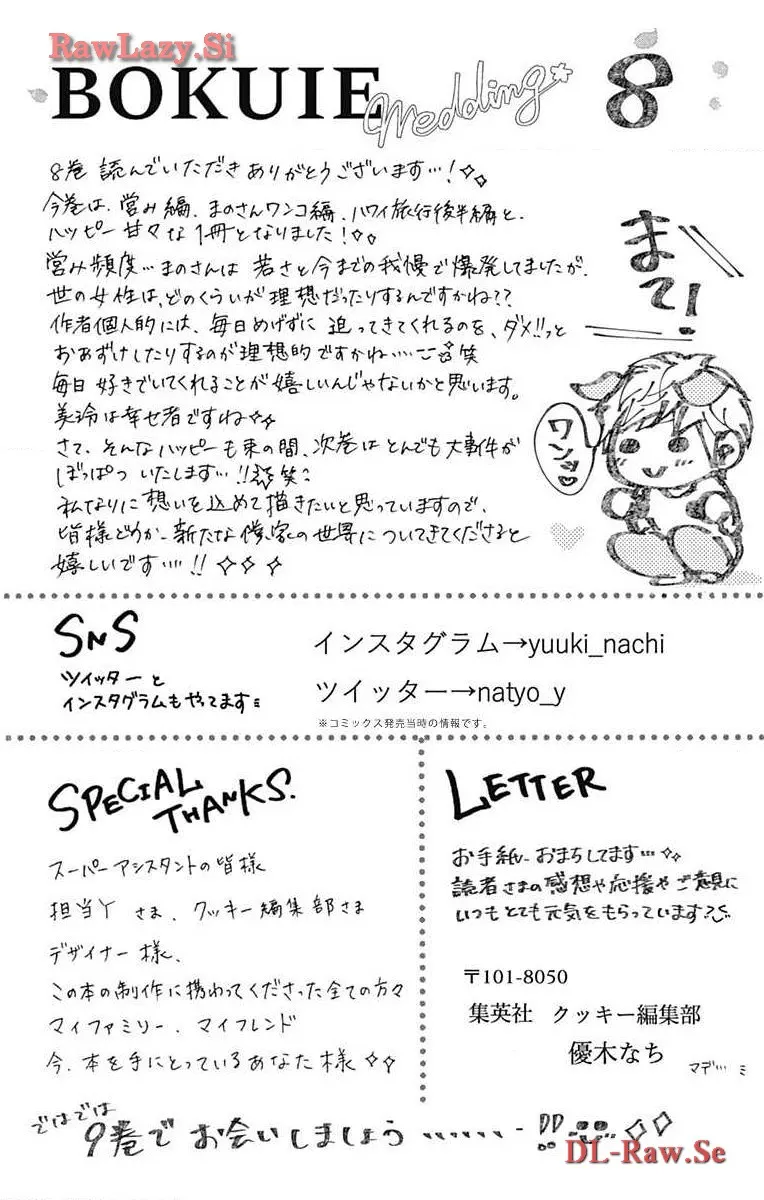 RawLazy.Si
BOKUIE Wedding 8
8巻 読んでいただきありがとうございます…!
今巻は、営み編、まのさんワンコ編、ハワイ旅行後半編と、
ハッピー甘々な1冊となりました!
営み頻度…まのさんは 若さと今までの我慢で爆発してましたが、
世の女性は、どのくらいが理想だったりするんですかね??
作者個人的には、毎日めげずに 迫ってきてくれるのを、ダメ!!っと
おあずけしたりするのが理想的ですかね……笑
毎日 好きでいてくれることが嬉しいんじゃないかと思います。
美玲は幸せ者ですね
さて、そんなハッピーも束の間、次巻はとんでも大事件が
ぼっぱつ いたします…!!笑
私なりに想いを込めて描きたいと思っていますので、
皆様どうか、新たな僕家の世界についてきてくださると
嬉しいです…!!
まて!
ワンッ
SNS
ツイッターと
インスタグラムもやってます
インスタグラム→yuuki_nachi
ツイッター→natyo_y
※コミックス発売当時の情報です。
SPECIAL
THANKS.
スーパーアシスタントの皆様
担当Yさま、クッキー編集部さま
デザイナー様、
この本の制作に携わってくださった全ての方々
マイファミリー、マイフレンド
今、本を手にとっているあなた様
LETTER
お手紙 おまちしてます…
読者さまの感想や応援やご意見に
いつもとても元気をもらっています
〒101-8050
集英社 クッキー編集部
優木なち
マデ…
ではでは
9巻で お会いしましょう
DL-Raw.Se